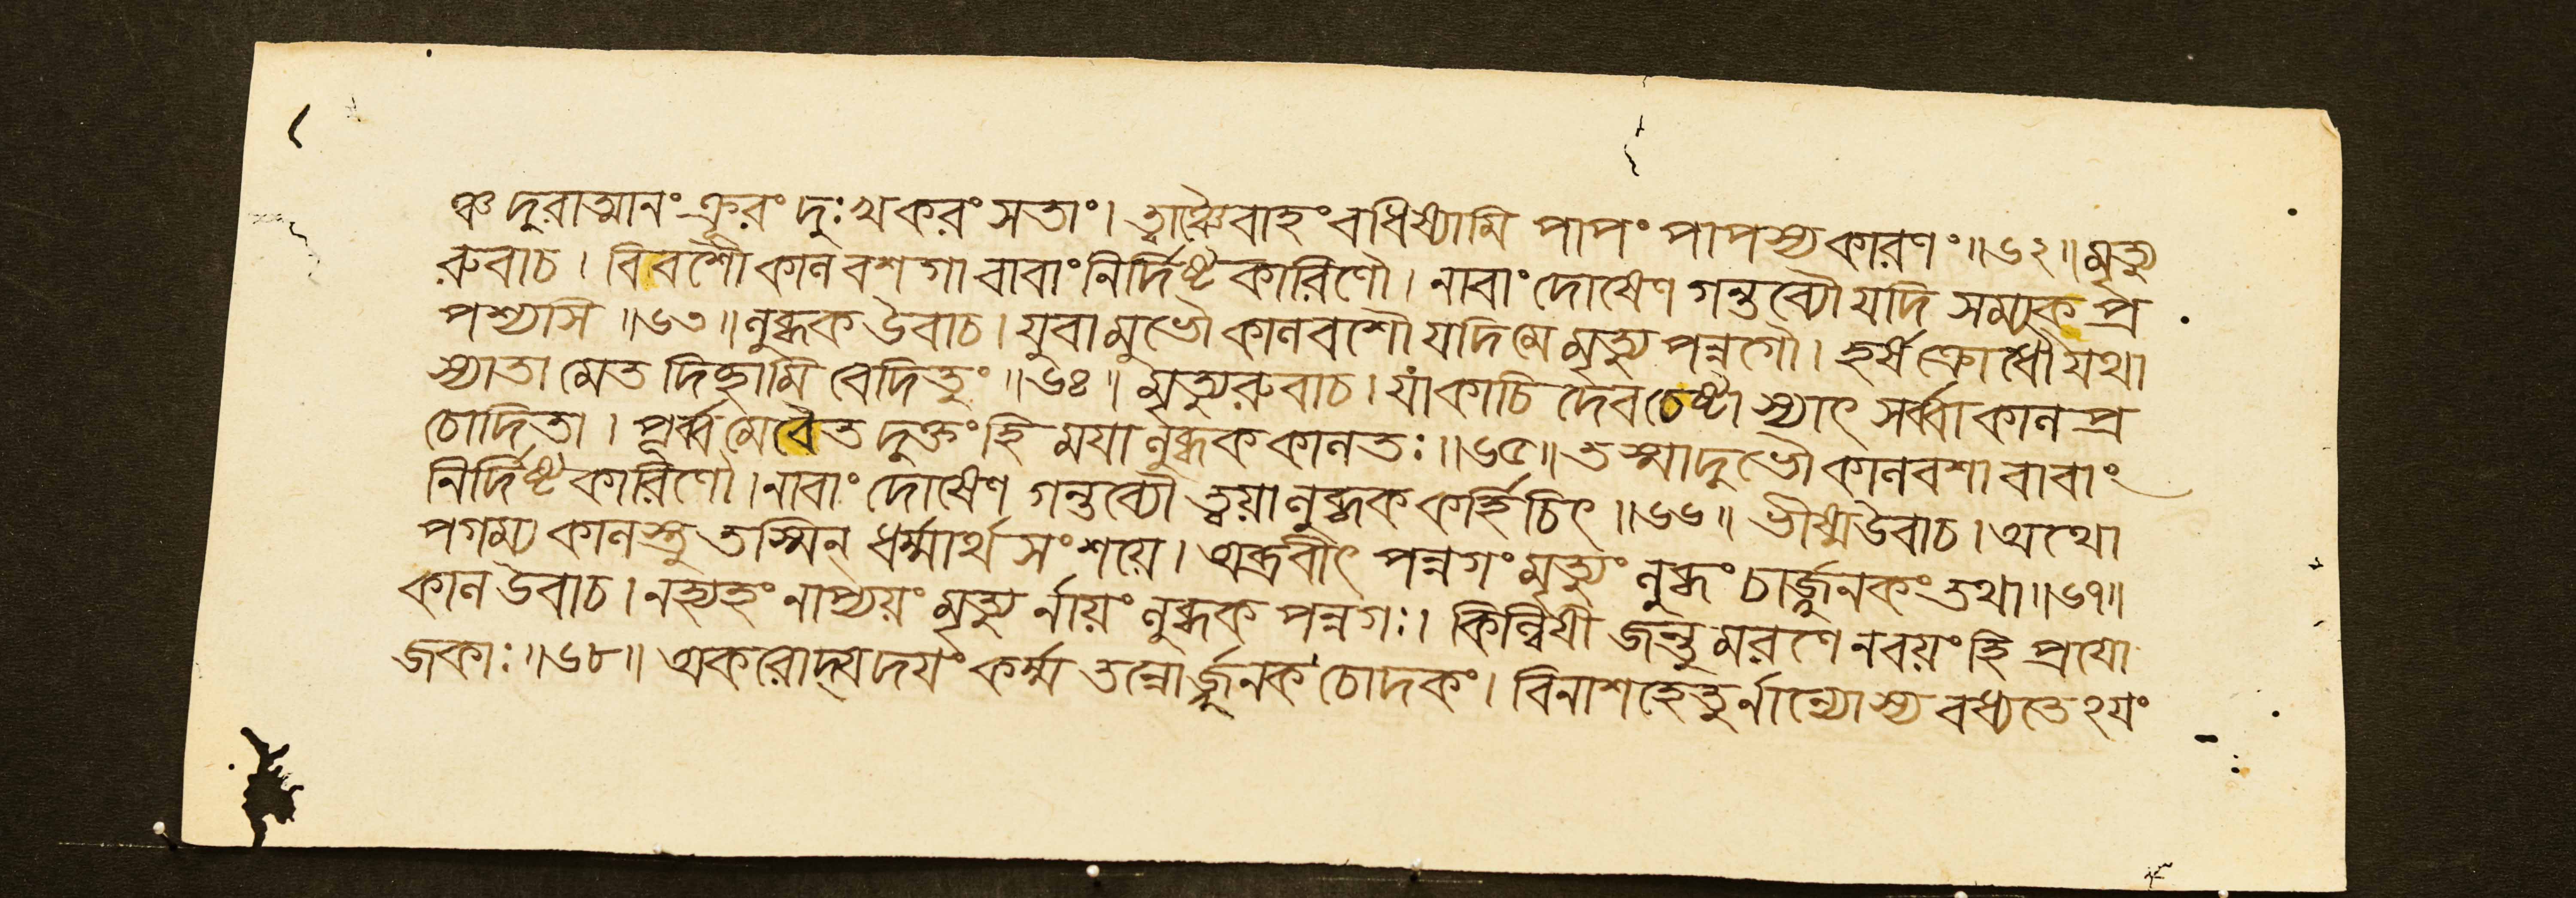 ঞ্চ দুরাত্মানং ক্রূরং দুঃখকরং সতাং। ত্বাঞ্চৈবাহং বধিষ্যামি পাপং পাপস্য কারণং॥৬২॥ মৃত্যু
রুবাচ। বিবশৌ কালবশগাবাবাং নির্দিষ্টকারিণৌ। নাবাং দোষেণ গন্তব্যৌ যদি সম্যক প্র
পশ্যসি॥৬৩॥ লুব্ধক উবাচ। যুবামুভৌ কালবশৌ যদি মে মৃত্যুপন্নগৌ। হর্ষক্রোধৌ যথা
স্যাতামেতদিচ্ছামি বেদিতুং॥৬৪॥ মৃত্যুরুবাচ। যা কাচিদেব চেষ্টা স্যাৎ সর্ব্বা কালপ্র
চোদিতা। পূর্ব্বমেবৈতদুক্তং হি ময়া লুব্ধক কালতঃ॥৬৫॥ তস্মাদুভৌ কালবশাবাবাং
নির্দিষ্টকারিণৌ। নাবাং দোষেণ গন্তব্যৌ ত্বয়া লুব্ধক কর্হিচিৎ॥৬৬॥ ভীষ্ম উবাচ। অথো
পগম্য কালস্তু তস্মিন্ ধর্ম্মার্থসংশয়ে। অব্রবীৎ পন্নগং মৃত্যুং লুব্ধং চার্জ্জুনকং তথা॥৬৭॥
কাল উবাচ। নহ্যহং নাপ্যয়ং মৃত্যুর্নায়ং লুব্ধক পন্নগঃ। কিল্বিষী জন্তুমরণে ন বয়ং হি প্রযো
জকাঃ॥৬৮॥ অকরোদ্যদয়ং কর্ম্ম তন্নোর্জ্জুনক চোদকং। বিনাশহেতুর্নান্যোস্য বধ্যতেঽয়ং